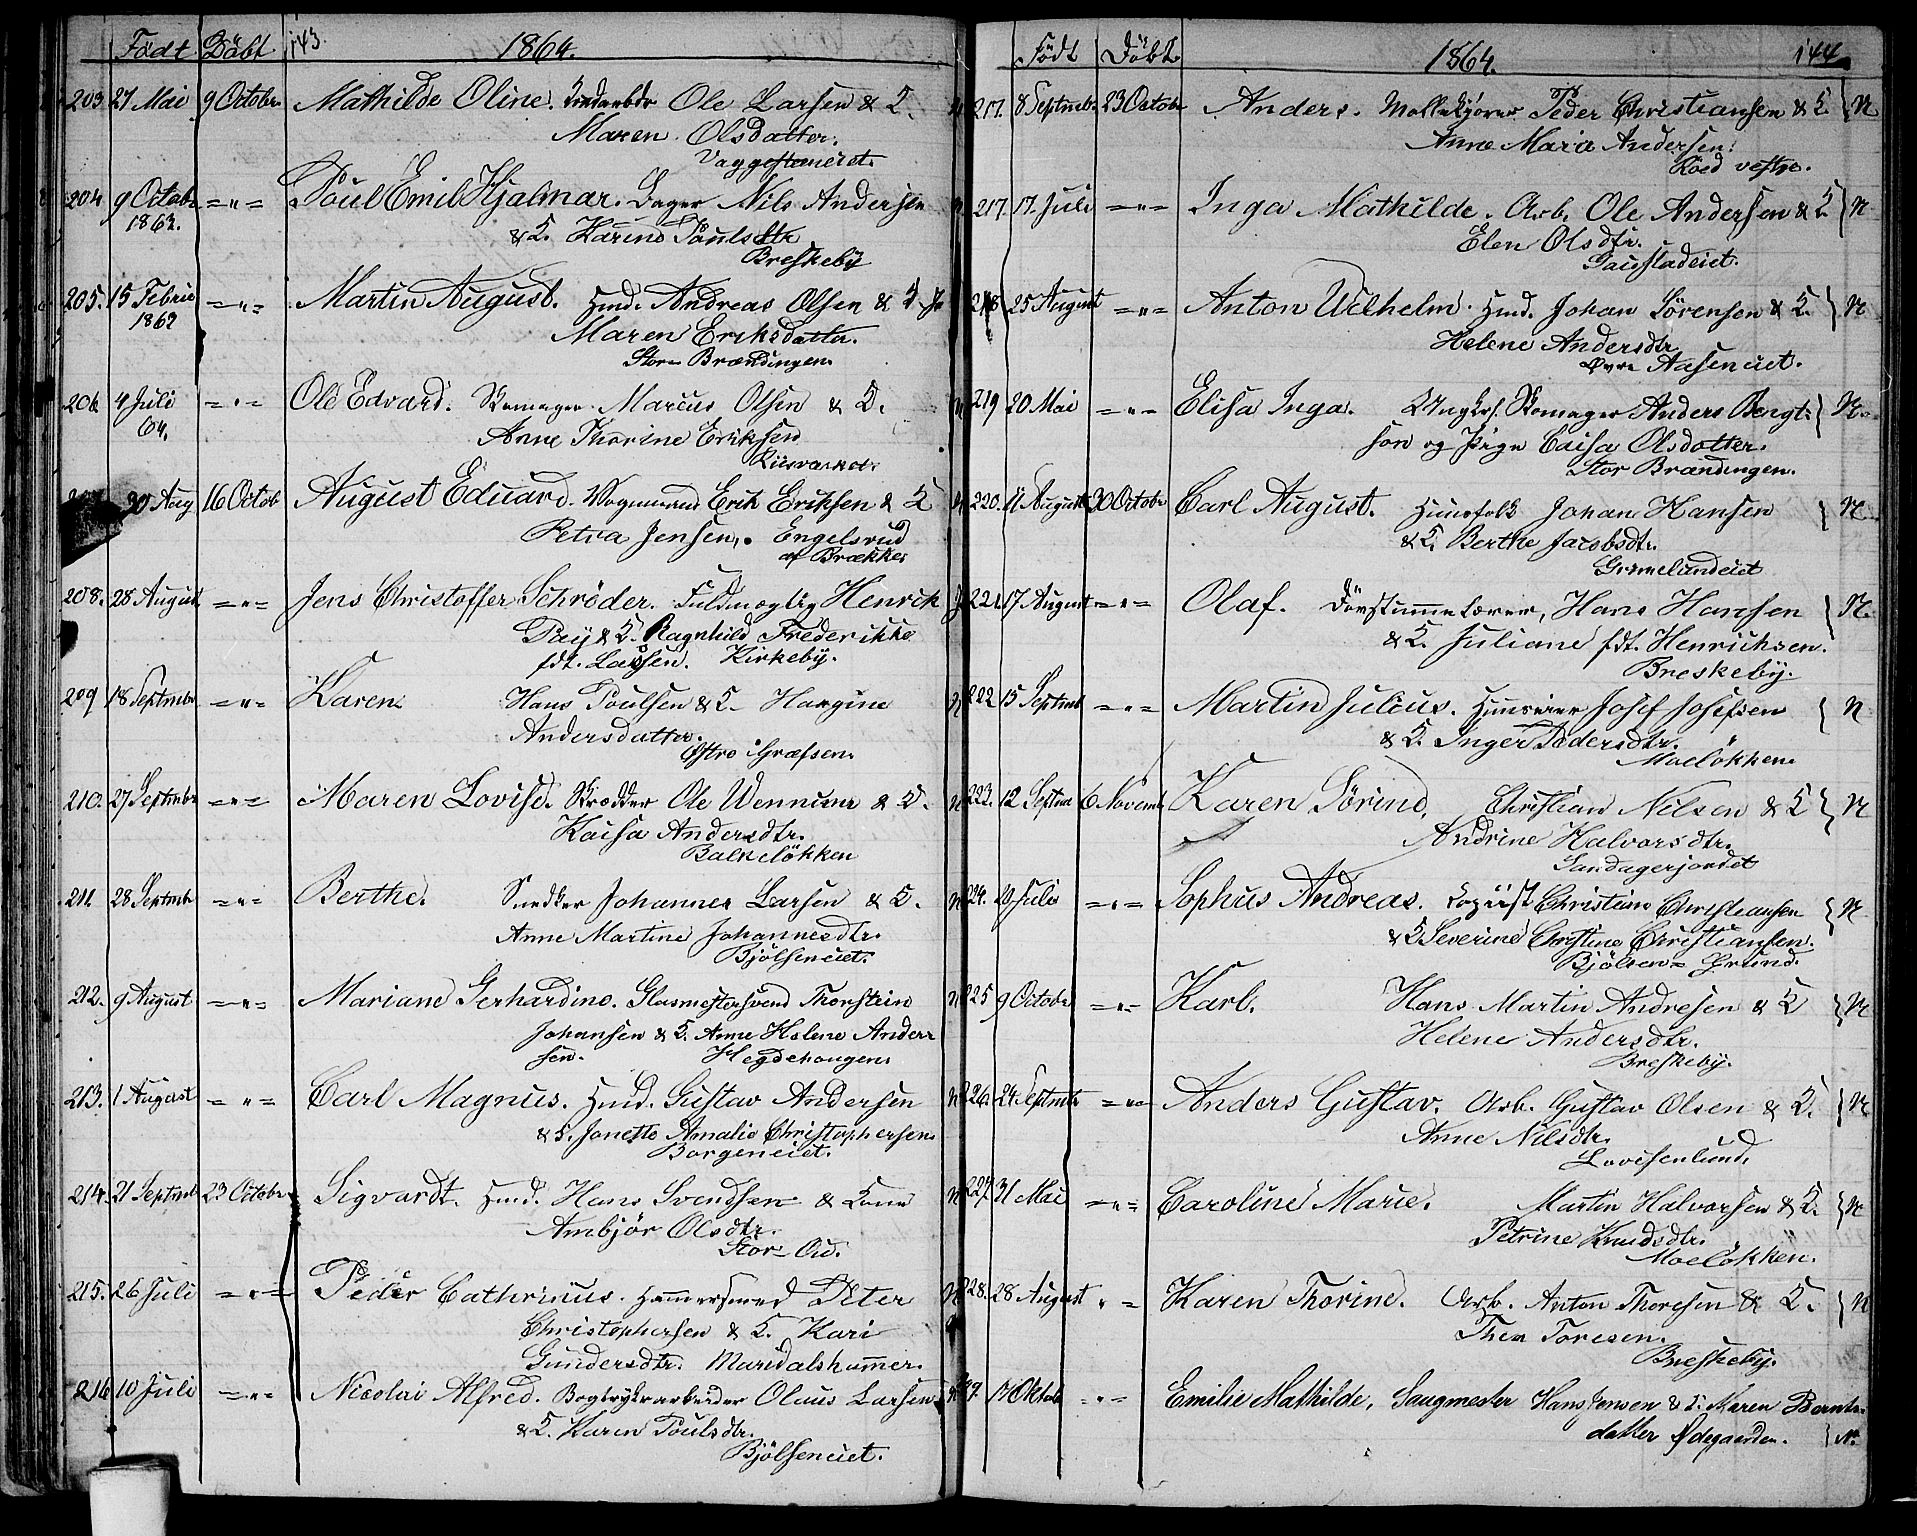 Födt Döbt 143. 1864.
203 27 Mai 9 Octobr Mathilde Oline. Ole Larsen & K.
Maren Olsdatter.
204 9 Octobr =〃= Poul Emil Hjalmar. Nils Andersen
1863. & K. Karine Poulsdtr
Breskeby
205. 15 Febru =〃= Martin August. Hmd. Andreas Olsen & K.
1862 Maren Eriksdatter.
Store Brændingen.
206 4 Juli =〃= Ole Edvard. Skomager Marcus Olsen & K.
64. Anne Thorine Eriksen
30 Aug 16 Octob August Eduard. Vognmand Erik Eriksen & K
Petra Jensen. Engelsrud
af Brække
208. 28 August =〃= Jens Christoffer Schröder. Fuldmægtig Henrik
& K. Ragnhild Frederikke
fdt. Lassen. Kirkeby.
209 18 Septmbr =〃= Karen. Hans Poulsen & K. Hangine
Andersdatter.
Østre Græfsen.
210. 27 Septmbr =〃= Maren Lovise. Skrædder Ole Wennime & K.
Kaisa Andersdtr.
Balkeløkken
211. 28 Septmb =〃= Berthe. Snedker Johannes Larsen & K.
Anne Martine Johannesdtr.
Bjölseneiet.
212. 9 August =〃= Mariane Gerhardine. Glasmestersvend Thorstein
Johansen & K. Anne Helene Ander
sen. Hegdehougen.
213. 1 August =〃= Carl Magnus. Hmd. Gustav Andersen
& K. Janette Amalie Christophersen.
Borgeneiet.
214. 21 Septmb 23 Octobr Sigvardt. Hmd. Hans Svendsen & Kone
Ambjör Olsdtr.
215. 26 Juli =〃= Peder Cathrinus. Hammersmed Peter
Christophersen & K. Kari
Gundersdtr. Maridalshammer.
216 10 Juli =〃= Nicolai Alfred. Bogtrykerarbeider Olaus Larsen
& K. Karen Poulsdtr.
Bjölseneiet.
Födt Döbt 1864. 144
217. 8 Septmbr 23 Octobr Anders. Møllekjører Peder Christiansen & K. } N
Anne Maria Andersen.
Röed vestre.
217. 17. Juli =〃= Inga Mathilde. Arb. Ole Andersen & K. } N
Elen Olsdtr.
Gaustadeiet.
218 25 August =〃= Anton Wilhelm. Hmd. Johan Sörensen & K. } N
Helene Andersdtr.
Øvre Aaseneiet.
219 20 Mai =〃= Elisa Inga. Ungkrl. Skomager Anders Bengt= } N.
son og Pige Caisa Olsdatter.
Stor Brændingen.
220. 11 August 30 Octobr Carl August. Huusfolk Johan Hansen } N.
& K. Berthe Jacobsdtr.
Grimelundeiet
221. 17 August =〃= Olaf. Døvstummelærer, Hans Hansen } N.
& K. Juliane fdt. Henrichsen.
Breskeby.
222 15 Septmb =〃= Martin Julius. Huuseier Josef Josefsen } N
& K. Inger Pedersdtr.
Moeløkken
223. 12 Septm 6 Novemb Karen Sörine. Christian Nilsen & K } N
Andrine Halvorsdtr.
Sandagerjordet
224. 20 Juli =〃= Sophus Andreas. Copiist Christian Christiansen } N
& K Severine Christine Christiansen.
Bjölsen= Grund.
225 9 Octobr =〃= Karl. Hans Martin Andresen & K } N
Helene Andersdtr.
Breskeby.
226. 24 Septmb =〃= Anders Gustav. Arb. Gustav Olsen & K. } N
Anne Nilsdtr.
Lovisenlund.
227. 31 Mai =〃= Caroline Marie. Martin Halvorsen & K. } N
Petrine Knudsdtr.
Moeløkken.
228. 28 August 〃 = Karen Thorine. Arb. Anton Thoresen & K. } N
Thea Toresen.
Breskeby.
17 Oktob =〃= Emilie Mathilde, Saugmester Hans Jensen & K. Maren Bernts
datter Ødegaarden. } N.